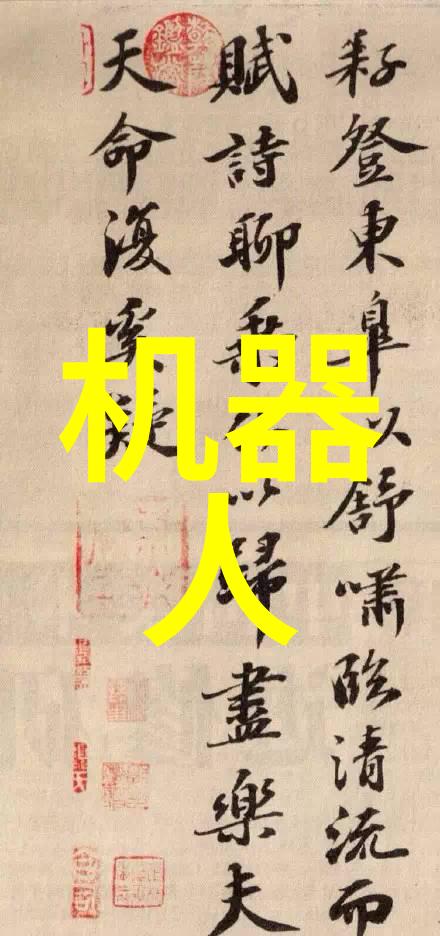 耔登東皋以舒嘯臨清流而
賦詩聊乘化以歸盡樂夫
天命復奚疑
机器
人